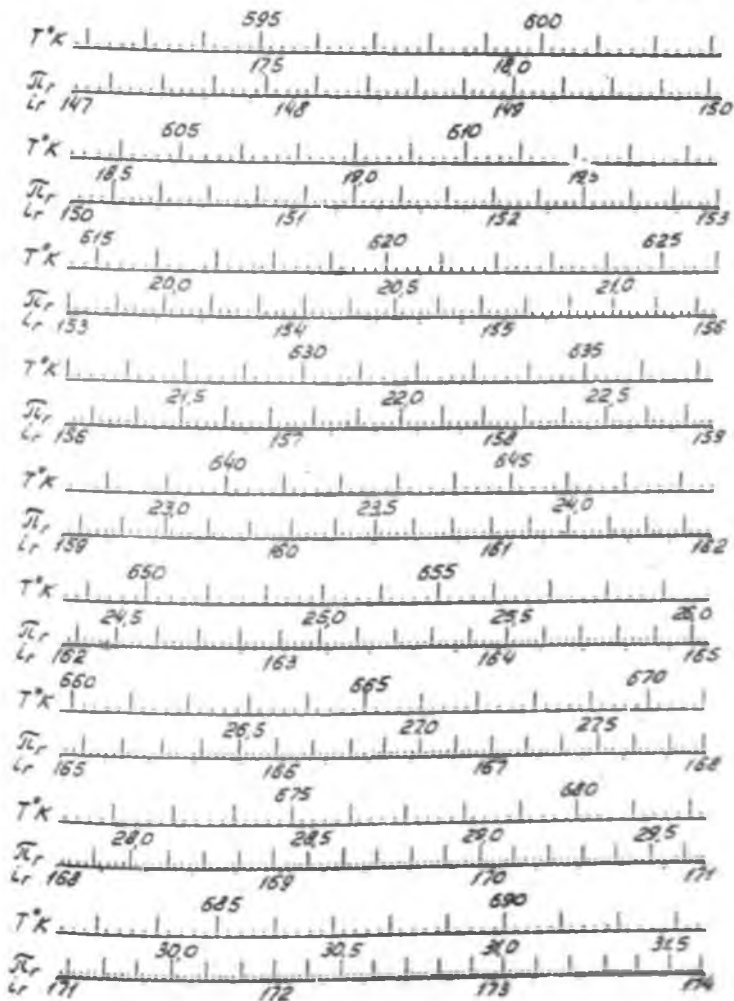 595 600
T°K
17,5 18,0
πr
ir 147 148 149 150
605 610
T°K
18,5 19,0 19,5
πr
ir 150 151 152 153
615 620 625
T°K
20,0 20,5 21,0
πr
ir 153 154 155 156
630 635
T°K
21,5 22,0 22,5
πr
ir 156 157 158 159
640 645
T°K
23,0 23,5 24,0
πr
ir 159 160 161 162
650 655
T°K
24,5 25,0 25,5 26,0
πr
ir 162 163 164 165
660 665 670
T°K
26,5 27,0 27,5
πr
ir 165 166 167 168
675 680
T°K
28,0 28,5 29,0 29,5
πr
ir 168 169 170 171
685 690
T°K
30,0 30,5 31,0 31,5
πr
ir 171 172 173 174